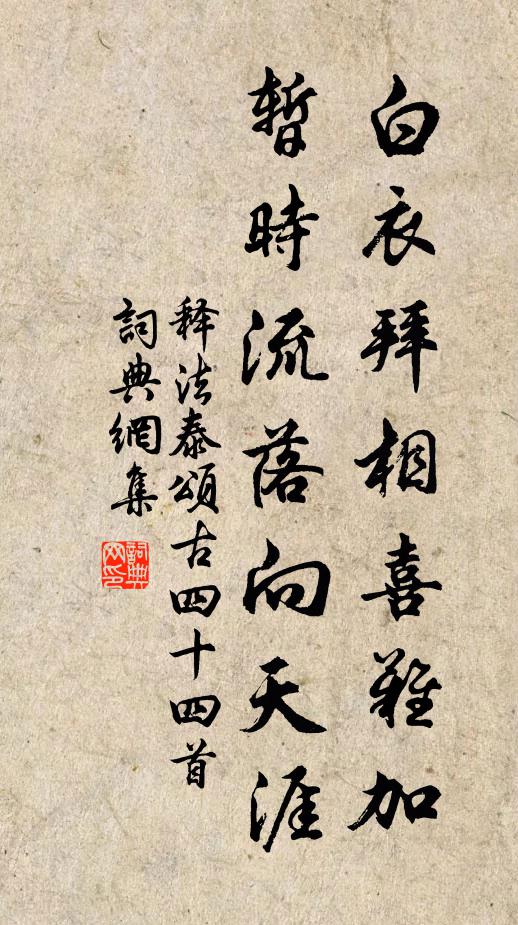 白衣拜相喜難加
暫時流落向天涯
释法泰頌古四十四首
詞典網集
詞典網印